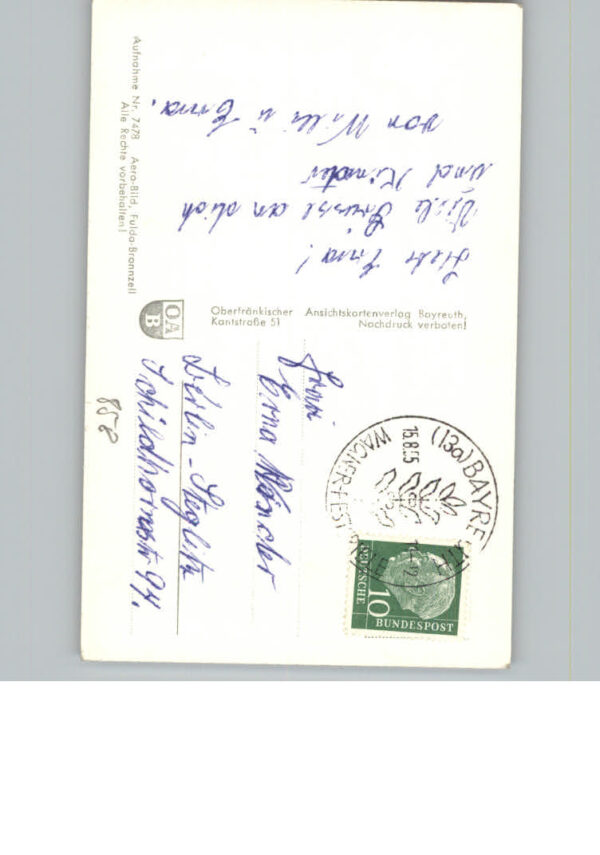 Liebe Erna!
Viele Grüsse an dich
und Kinder
von Willi u Erna.
Aufnahme Nr. 7478 Aero-Bild, Fulda-Bronnzell
Alle Rechte vorbehalten!
O/A
B
Oberfränkischer Ansichtskartenverlag Bayreuth,
Kantstraße 51 Nachdruck verboten!
Frau
Erna
Berlin-Steglitz
Schildhornstr 94.
858
(13a) BAYRE
15.8.55
WAGNER-FESTSP
10
DEUTSCHE
BUNDESPOST